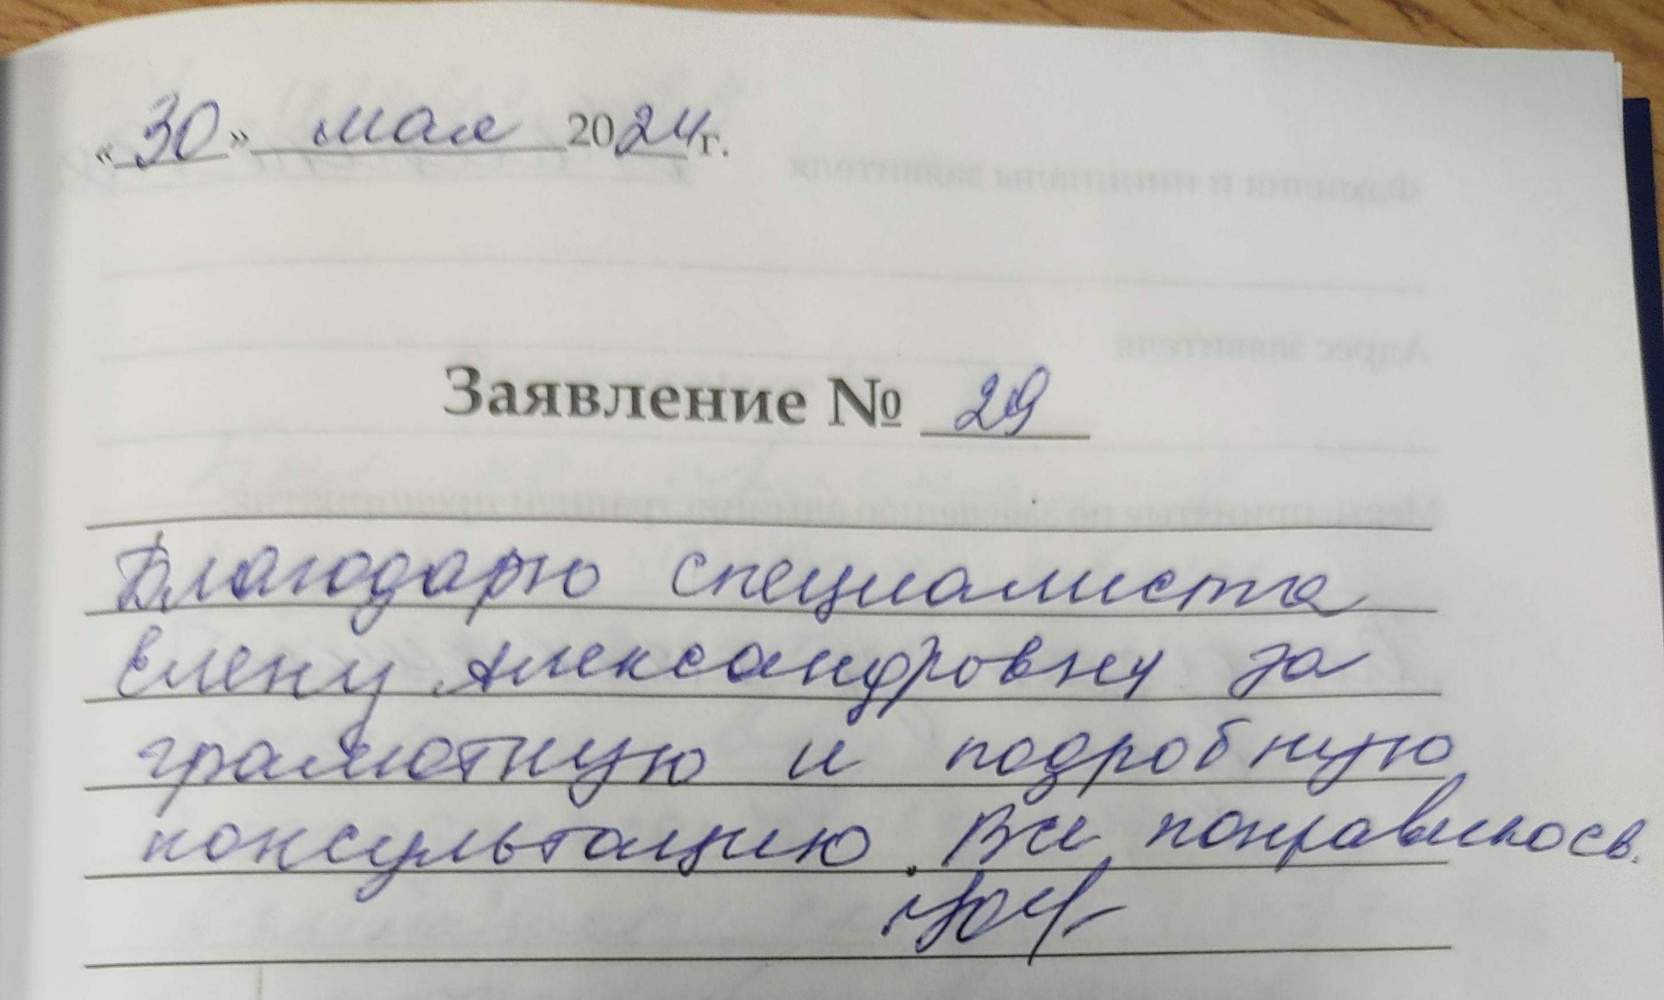 «30» мая 2024г.
Заявление № 29
Благодарю специалиста
Елену Александровну за
грамотную и подробную
консультацию. Все понравилось.